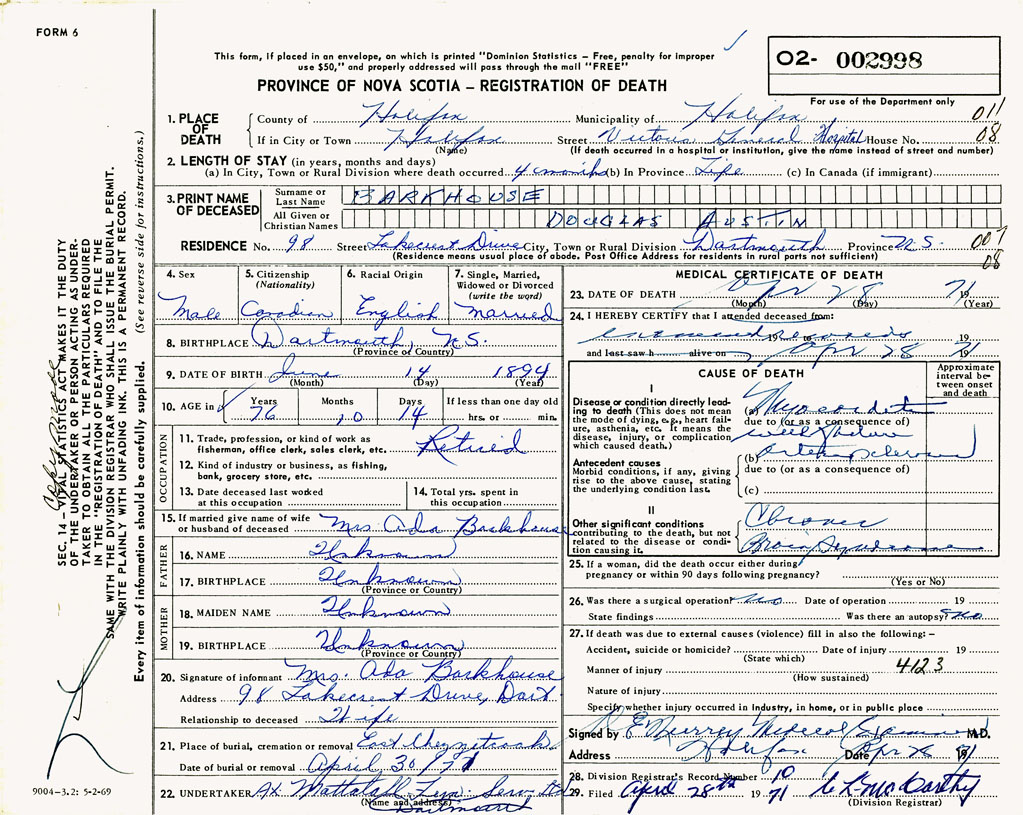 FORM 6
This form, if placed in an envelope, on which is printed "Dominion Statistics – Free, penalty for improper
use $50," and properly addressed will pass through the mail "FREE"
O2- 002998
PROVINCE OF NOVA SCOTIA – REGISTRATION OF DEATH
For use of the Department only
1. PLACE OF DEATH
County of Halifax Municipality of Halifax 011
If in City or Town Halifax Street Victoria General Hospital House No. 08
(Name) (If death occurred in a hospital or institution, give the name instead of street and number)
2. LENGTH OF STAY (in years, months and days)
(a) In City, Town or Rural Division where death occurred 4 months (b) In Province Life (c) In Canada (if immigrant)
3. PRINT NAME OF DECEASED
Surname or Last Name BARKHOUSE
All Given or Christian Names DOUGLAS AUSTIN
RESIDENCE No. 98 Street Lakecrest Drive City, Town or Rural Division Dartmouth Province N.S. 007
(Residence means usual place of abode. Post Office Address for residents in rural parts not sufficient) 08
4. Sex
Male
5. Citizenship
(Nationality)
Canadian
6. Racial Origin
English
7. Single, Married,
Widowed or Divorced
(write the word)
Married
8. BIRTHPLACE Dartmouth, N.S.
(Province of Country)
9. DATE OF BIRTH June 14 1894
(Month) (Day) (Year)
10. AGE in Years Months Days If less than one day old
76 10 14 hrs. or min.
OCCUPATION
11. Trade, profession, or kind of work as
fisherman, office clerk, sales clerk, etc. Retired
12. Kind of industry or business, as fishing,
bank, grocery store, etc.
13. Date deceased last worked
at this occupation
14. Total yrs. spent in
this occupation
15. If married give name of wife
or husband of deceased Mrs. Ada Barkhouse
FATHER
16. NAME Unknown
17. BIRTHPLACE Unknown
(Province or Country)
MOTHER
18. MAIDEN NAME Unknown
19. BIRTHPLACE Unknown
(Province or Country)
20. Signature of informant Mrs. Ada Barkhouse
Address 98 Lakecrest Drive, Dart
Relationship to deceased Wife
21. Place of burial, cremation or removal East Chezzetcook
Date of burial or removal April 30/71
22. UNDERTAKER A.L. Mattatall Fun. Serv. Ltd
(Name and address) Dartmouth
MEDICAL CERTIFICATE OF DEATH
23. DATE OF DEATH Apr 28 1971
(Month) (Day) (Year)
24. I HEREBY CERTIFY that I attended deceased from:
19 to
and last saw h alive on Apr 28 71
CAUSE OF DEATH
Approximate
interval between
onset
and death
I
Disease or condition directly leading
to death (This does not mean
the mode of dying, e.g., heart failure,
asthenia, etc. It means the
disease, injury, or complication
which caused death.)
(a)
due to (or as a consequence of)
Antecedent causes
Morbid conditions, if any, giving
rise to the above cause, stating
the underlying condition last.
(b)
due to (or as a consequence of)
(c)
II
Other significant conditions
contributing to the death, but not
related to the disease or condition
causing it.
Chronic
Brain Syndrome
25. If a woman, did the death occur either during
pregnancy or within 90 days following pregnancy?
(Yes or No)
26. Was there a surgical operation? No Date of operation 19
State findings Was there an autopsy? No
27. If death was due to external causes (violence) fill in also the following:–
Accident, suicide or homicide? Date of injury 19
(State which)
Manner of injury 4123
(How sustained)
Nature of injury
Specify whether injury occurred in industry, in home, or in public place
Signed by Murray Medical Examiner M.D.
Address Halifax Date Apr 1971
28. Division Registrar's Record Number 10
29. Filed April 28th 1971
(Division Registrar)
SEC. 14 – VITAL STATISTICS ACT MAKES IT THE DUTY
OF THE UNDERTAKER OR PERSON ACTING AS UNDERTAKER
TO OBTAIN ALL THE PARTICULARS REQUIRED
IN THE "REGISTRATION OF DEATH" AND TO FILE THE
SAME WITH THE DIVISION REGISTRAR WHO SHALL ISSUE THE BURIAL PERMIT.
WRITE PLAINLY WITH UNFADING INK. THIS IS A PERMANENT RECORD.
Every item of information should be carefully supplied. (See reverse side for instructions.)
9004-3.2: 5-2-69